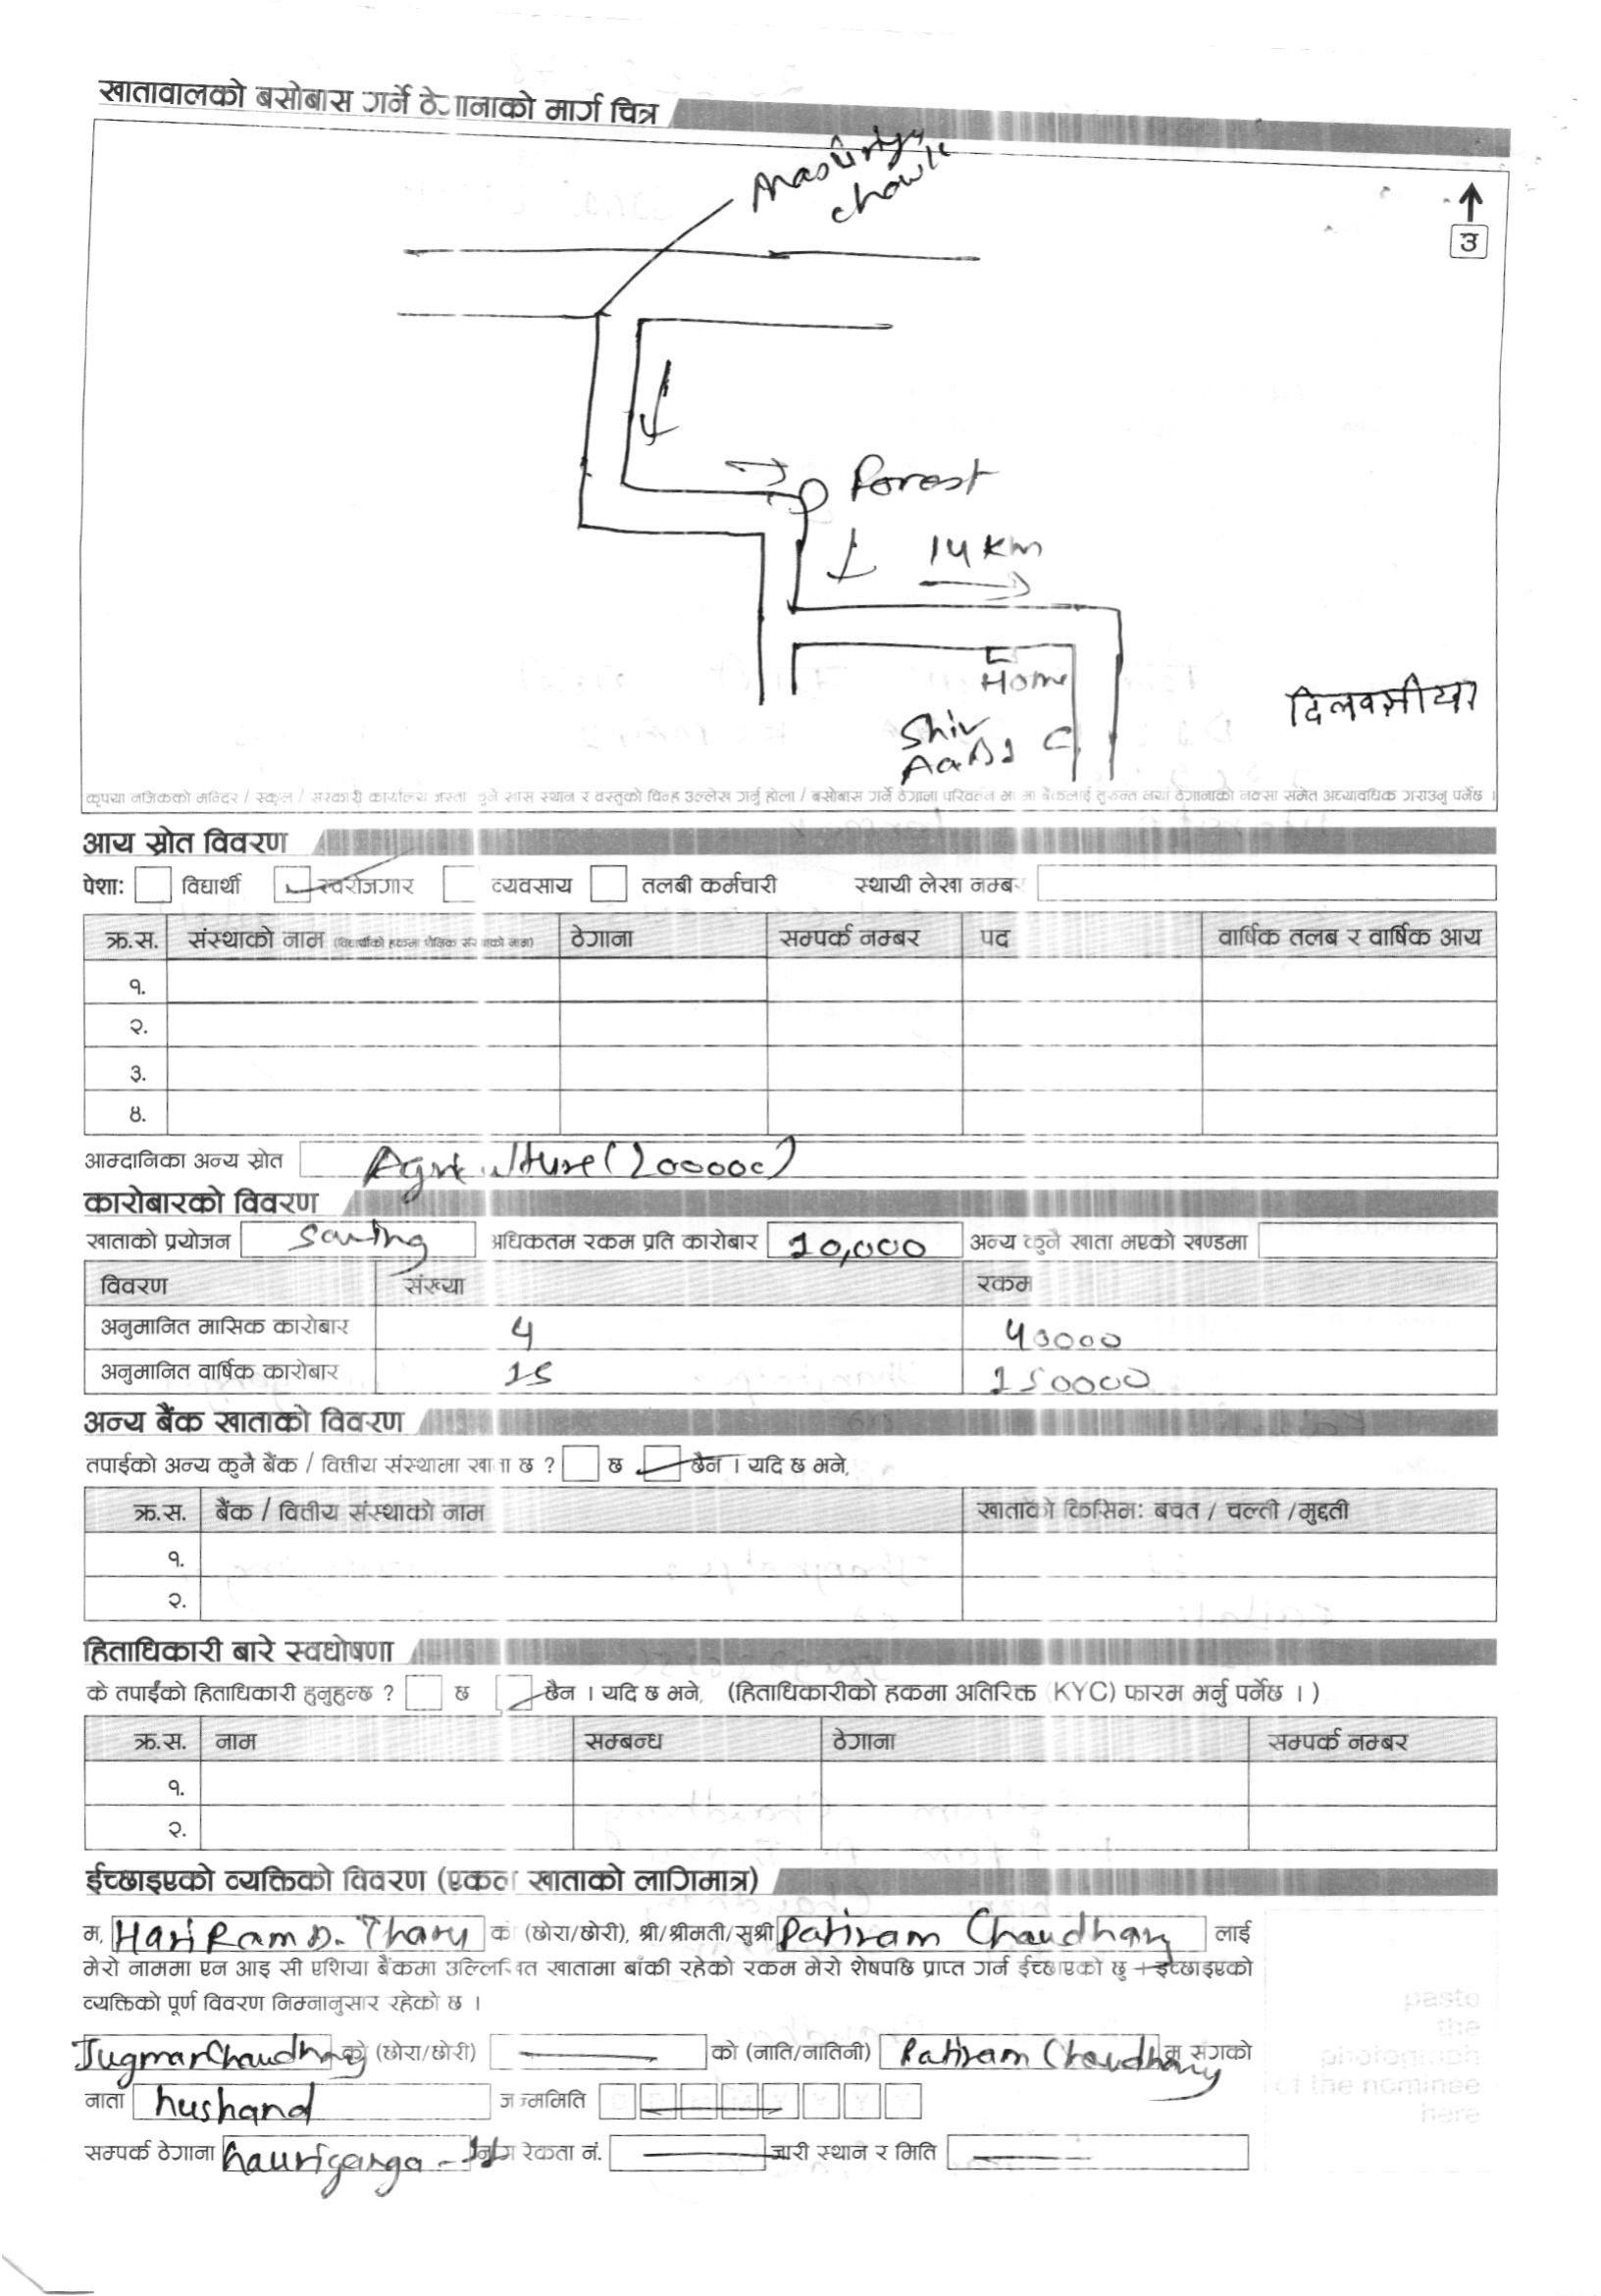 खातावालको बसोबास गर्ने ठेगानाको मार्ग चित्र
Masuriya
chowk
उ
Forest
14 km
Home
Shiv
कृपया नजिकको मन्दिर / स्कूल / सरकारी कार्यालय जस्ता चुने खास स्थान र वस्तुको चिन्ह उल्लेख गर्नु होला / बसोबास गर्ने ठेगाना परिवर्तन भएमा बैंकलाई तुरुन्त नयाँ ठेगानाको नक्सा समेत अध्यावधिक गराउनु पर्नेछ ।
आय स्रोत विवरण
पेशा: विद्यार्थी स्वरोजगार व्यवसाय तलबी कर्मचारी स्थायी लेखा नम्बर
क्र.स. संस्थाको नाम (विद्यार्थीको हकमा शैक्षिक संस्थाको नाम) ठेगाना सम्पर्क नम्बर पद वार्षिक तलब र वार्षिक आय
१.
२.
३.
४.
आम्दानिका अन्य स्रोत Agriculture (200000)
कारोबारको विवरण
खाताको प्रयोजन Saving अधिकतम रकम प्रति कारोबार 10,000 अन्य कुनै खाता भएको खण्डमा
विवरण संख्या रकम
अनुमानित मासिक कारोबार 4 40000
अनुमानित वार्षिक कारोबार 15 150000
अन्य बैंक खाताको विवरण
तपाईको अन्य कुनै बैंक / वित्तीय संस्थामा खाता छ ? छ छैन । यदि छ भने,
क्र.स. बैंक / वित्तीय संस्थाको नाम खाताको किसिम: बचत / चल्ती /मुद्दती
१.
२.
हिताधिकारी बारे स्वघोषणा
के तपाईंको हिताधिकारी हुनुहुन्छ ? छ छैन । यदि छ भने, (हिताधिकारीको हकमा अतिरिक्त (KYC) फारम भर्नु पर्नेछ । )
क्र.स. नाम सम्बन्ध ठेगाना सम्पर्क नम्बर
१.
२.
ईच्छाइएको व्यक्तिको विवरण (एकल खाताको लागिमात्र)
म, Hari Ram D. Tharu को (छोरा/छोरी), श्री/श्रीमती/सुश्री Patiram Chaudhary लाई
मेरो नाममा एन आइ सी एशिया बैंकमा उल्लिखित खातामा बाँकी रहेको रकम मेरो शेषपछि प्राप्त गर्न ईच्छाएको छु । ईच्छाइएको
व्यक्तिको पूर्ण विवरण निम्नानुसार रहेको छ ।
paste
the
photograph
of the nominee
here
Jugmar Chaudhary को (छोरा/छोरी) को (नाति/नातिनी) Patiram Chaudhary म संगको
नाता hushand जन्ममिति
सम्पर्क ठेगाना Gauriganga - नागरिकता नं. जारी स्थान र मिति